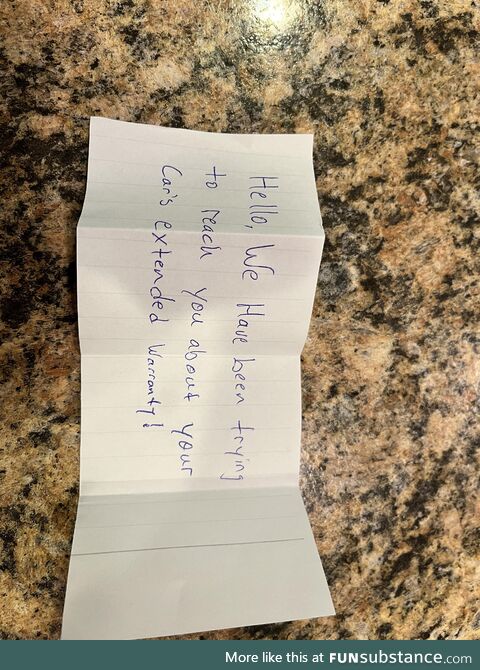 Hello, We Have been trying
to reach you about your
Car's extended Warranty!
More like this at FUNsubstance.com